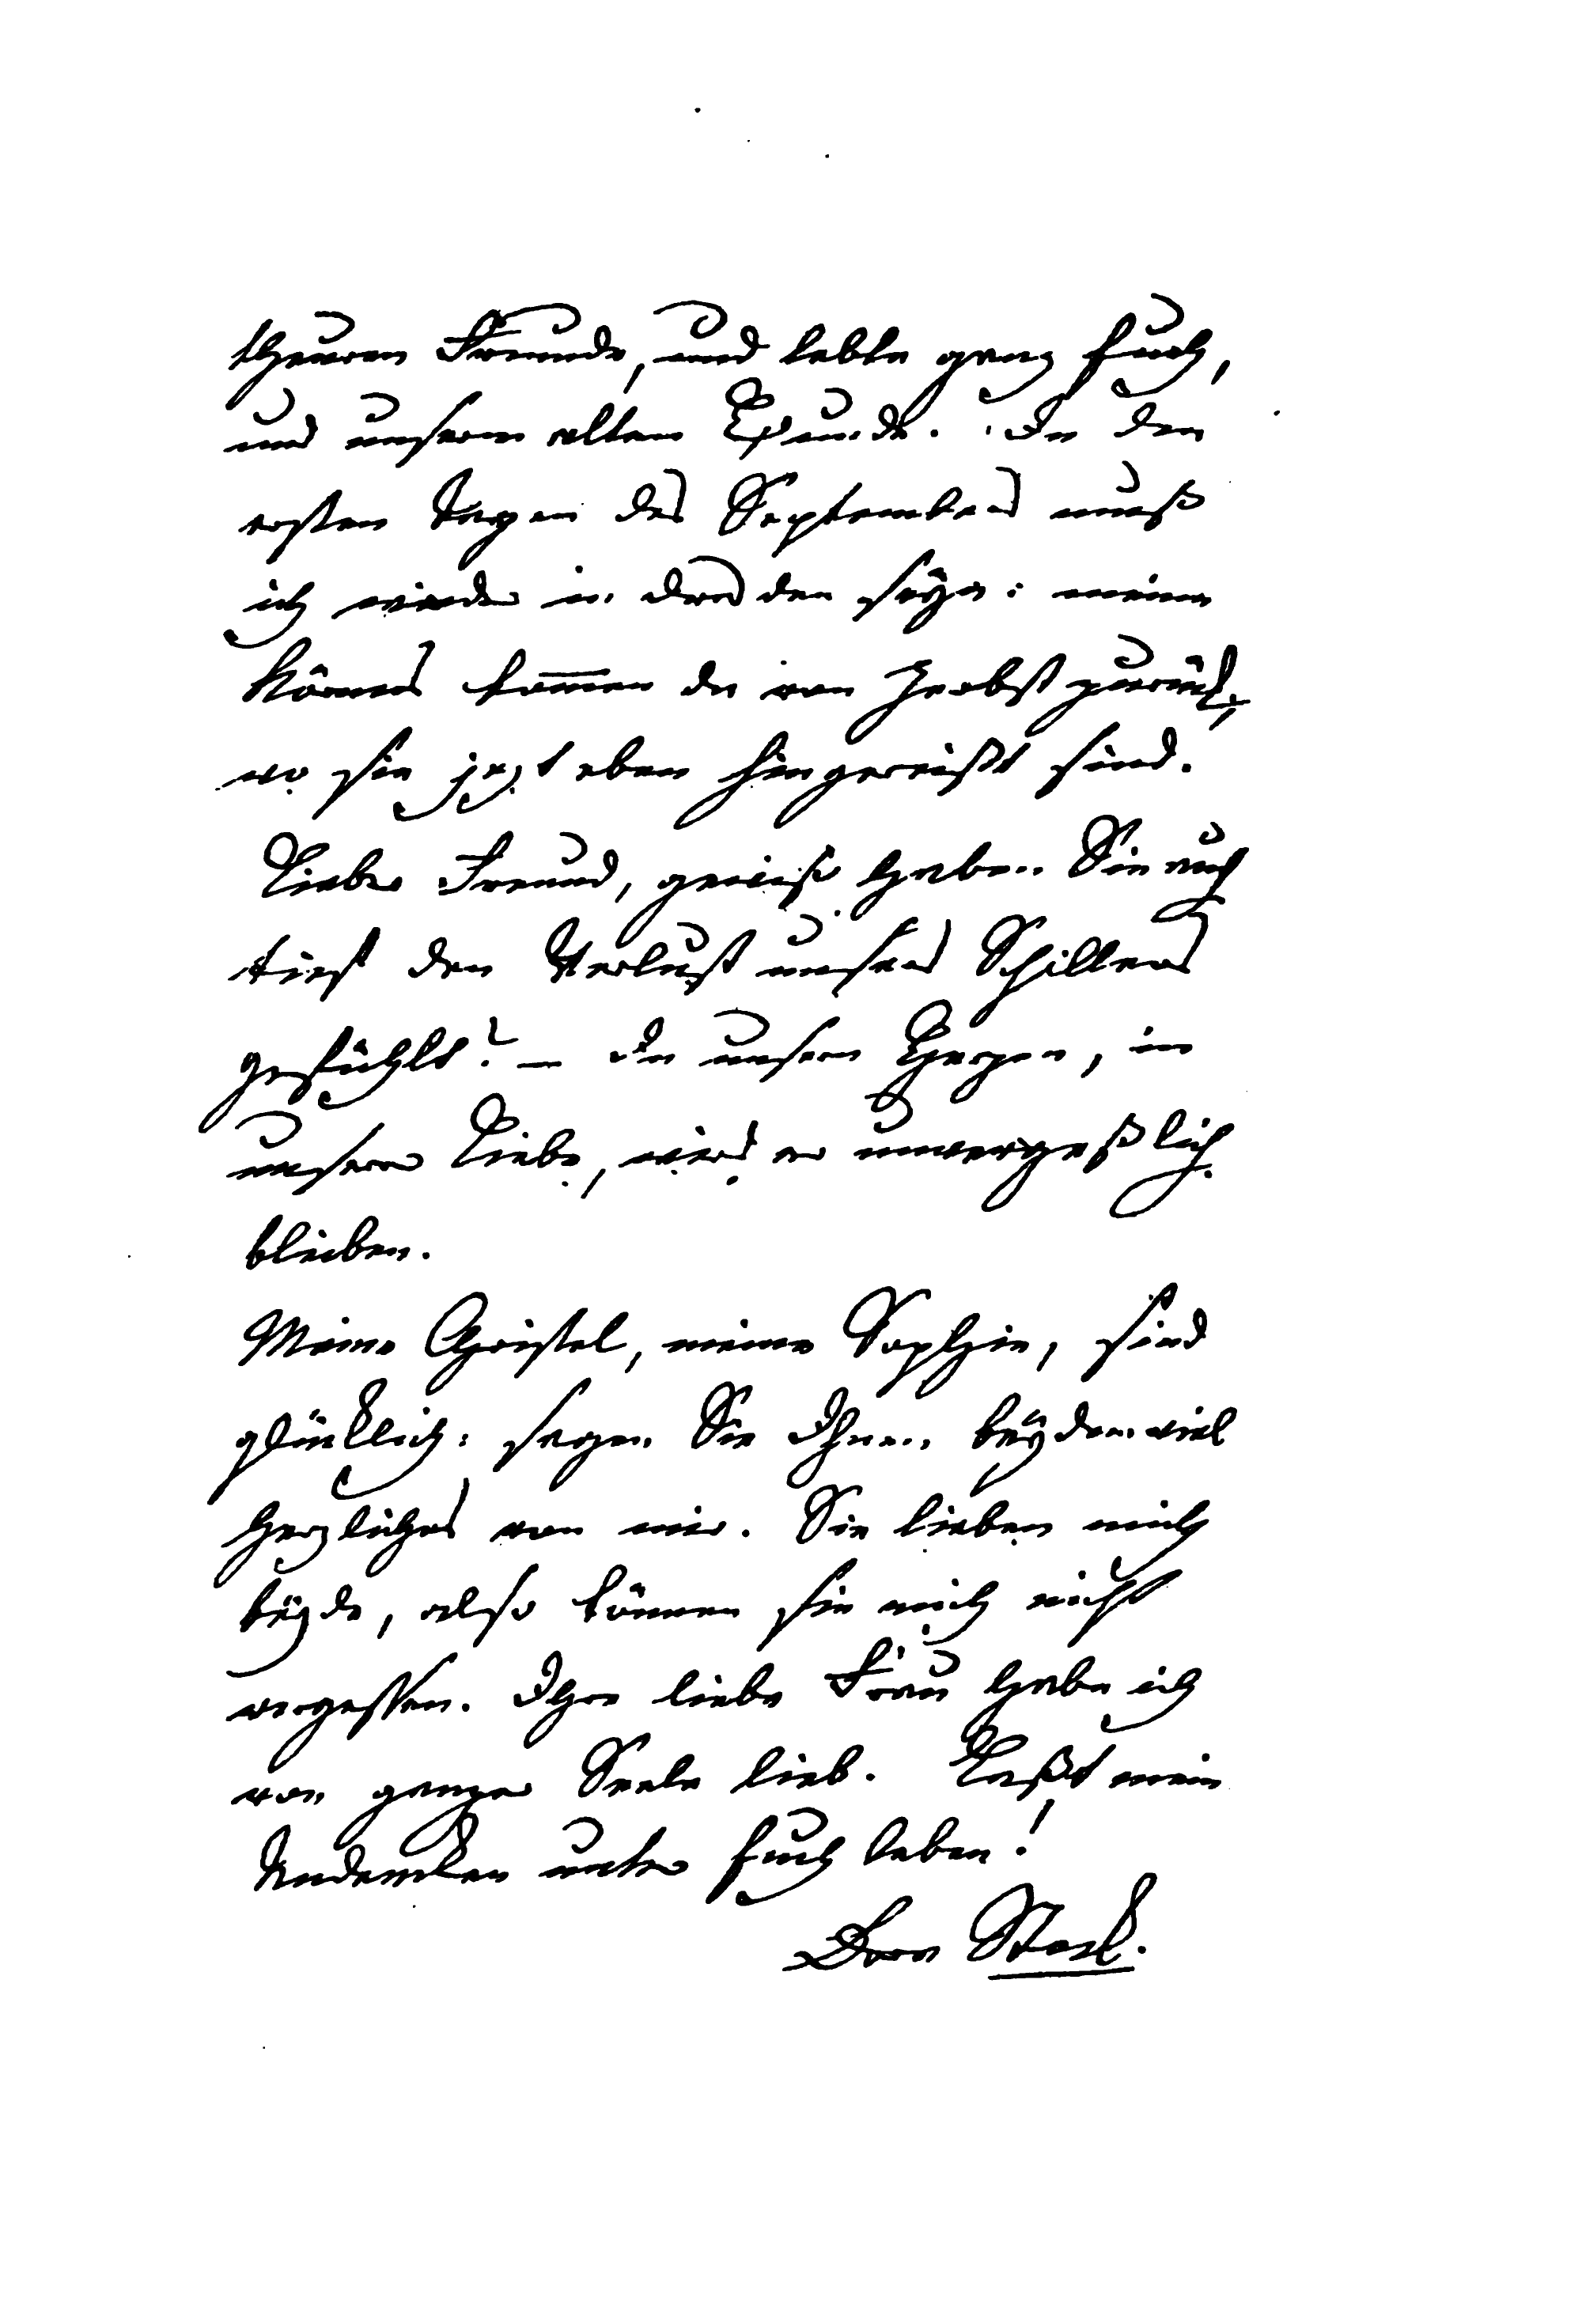 theuren Freunde, und lebte ganz Euch,
und unserm alten Bunde. In den
ersten Tagen des Septembers muß
ich wieder in Dresden seÿn: meine
Körners kommen da von Zerbst zurück,
wo sie jezt eben hingereißt sind.
Lieber Freund, gewiß haben Sie auch
tief den Verlust unsers Schillers
gefühlt? – In unsern Herzen, in
unserer Liebe, wird er unvergeßlich
bleiben.
Meine Christel, meine Sophie, sind
glücklich: sagen Sie Ihnen beÿden viel
herzliches von mir. Sie lieben mich
beÿde, also können sie mich nicht
vergessen. Ihre liebe Frau habe ich
von ganzer Seele lieb. Laßt mein
Andencken unter Euch leben!
Dora Stock.